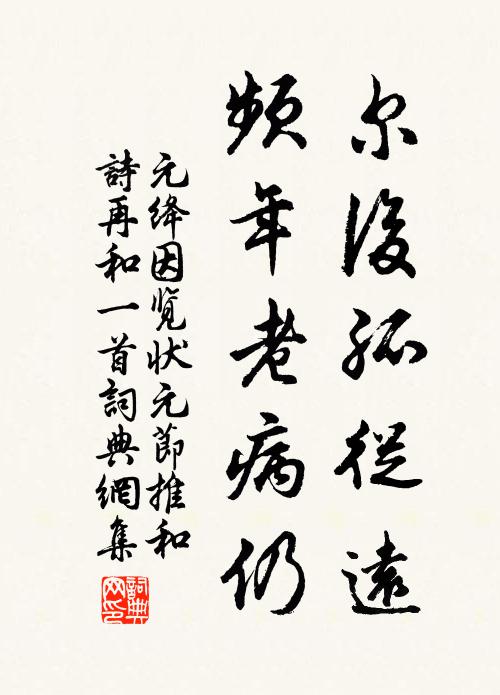 尔後孤從遠
頻年老病仍
元绛因览状元節推和
詩再和一首詞典網集
詞典网印